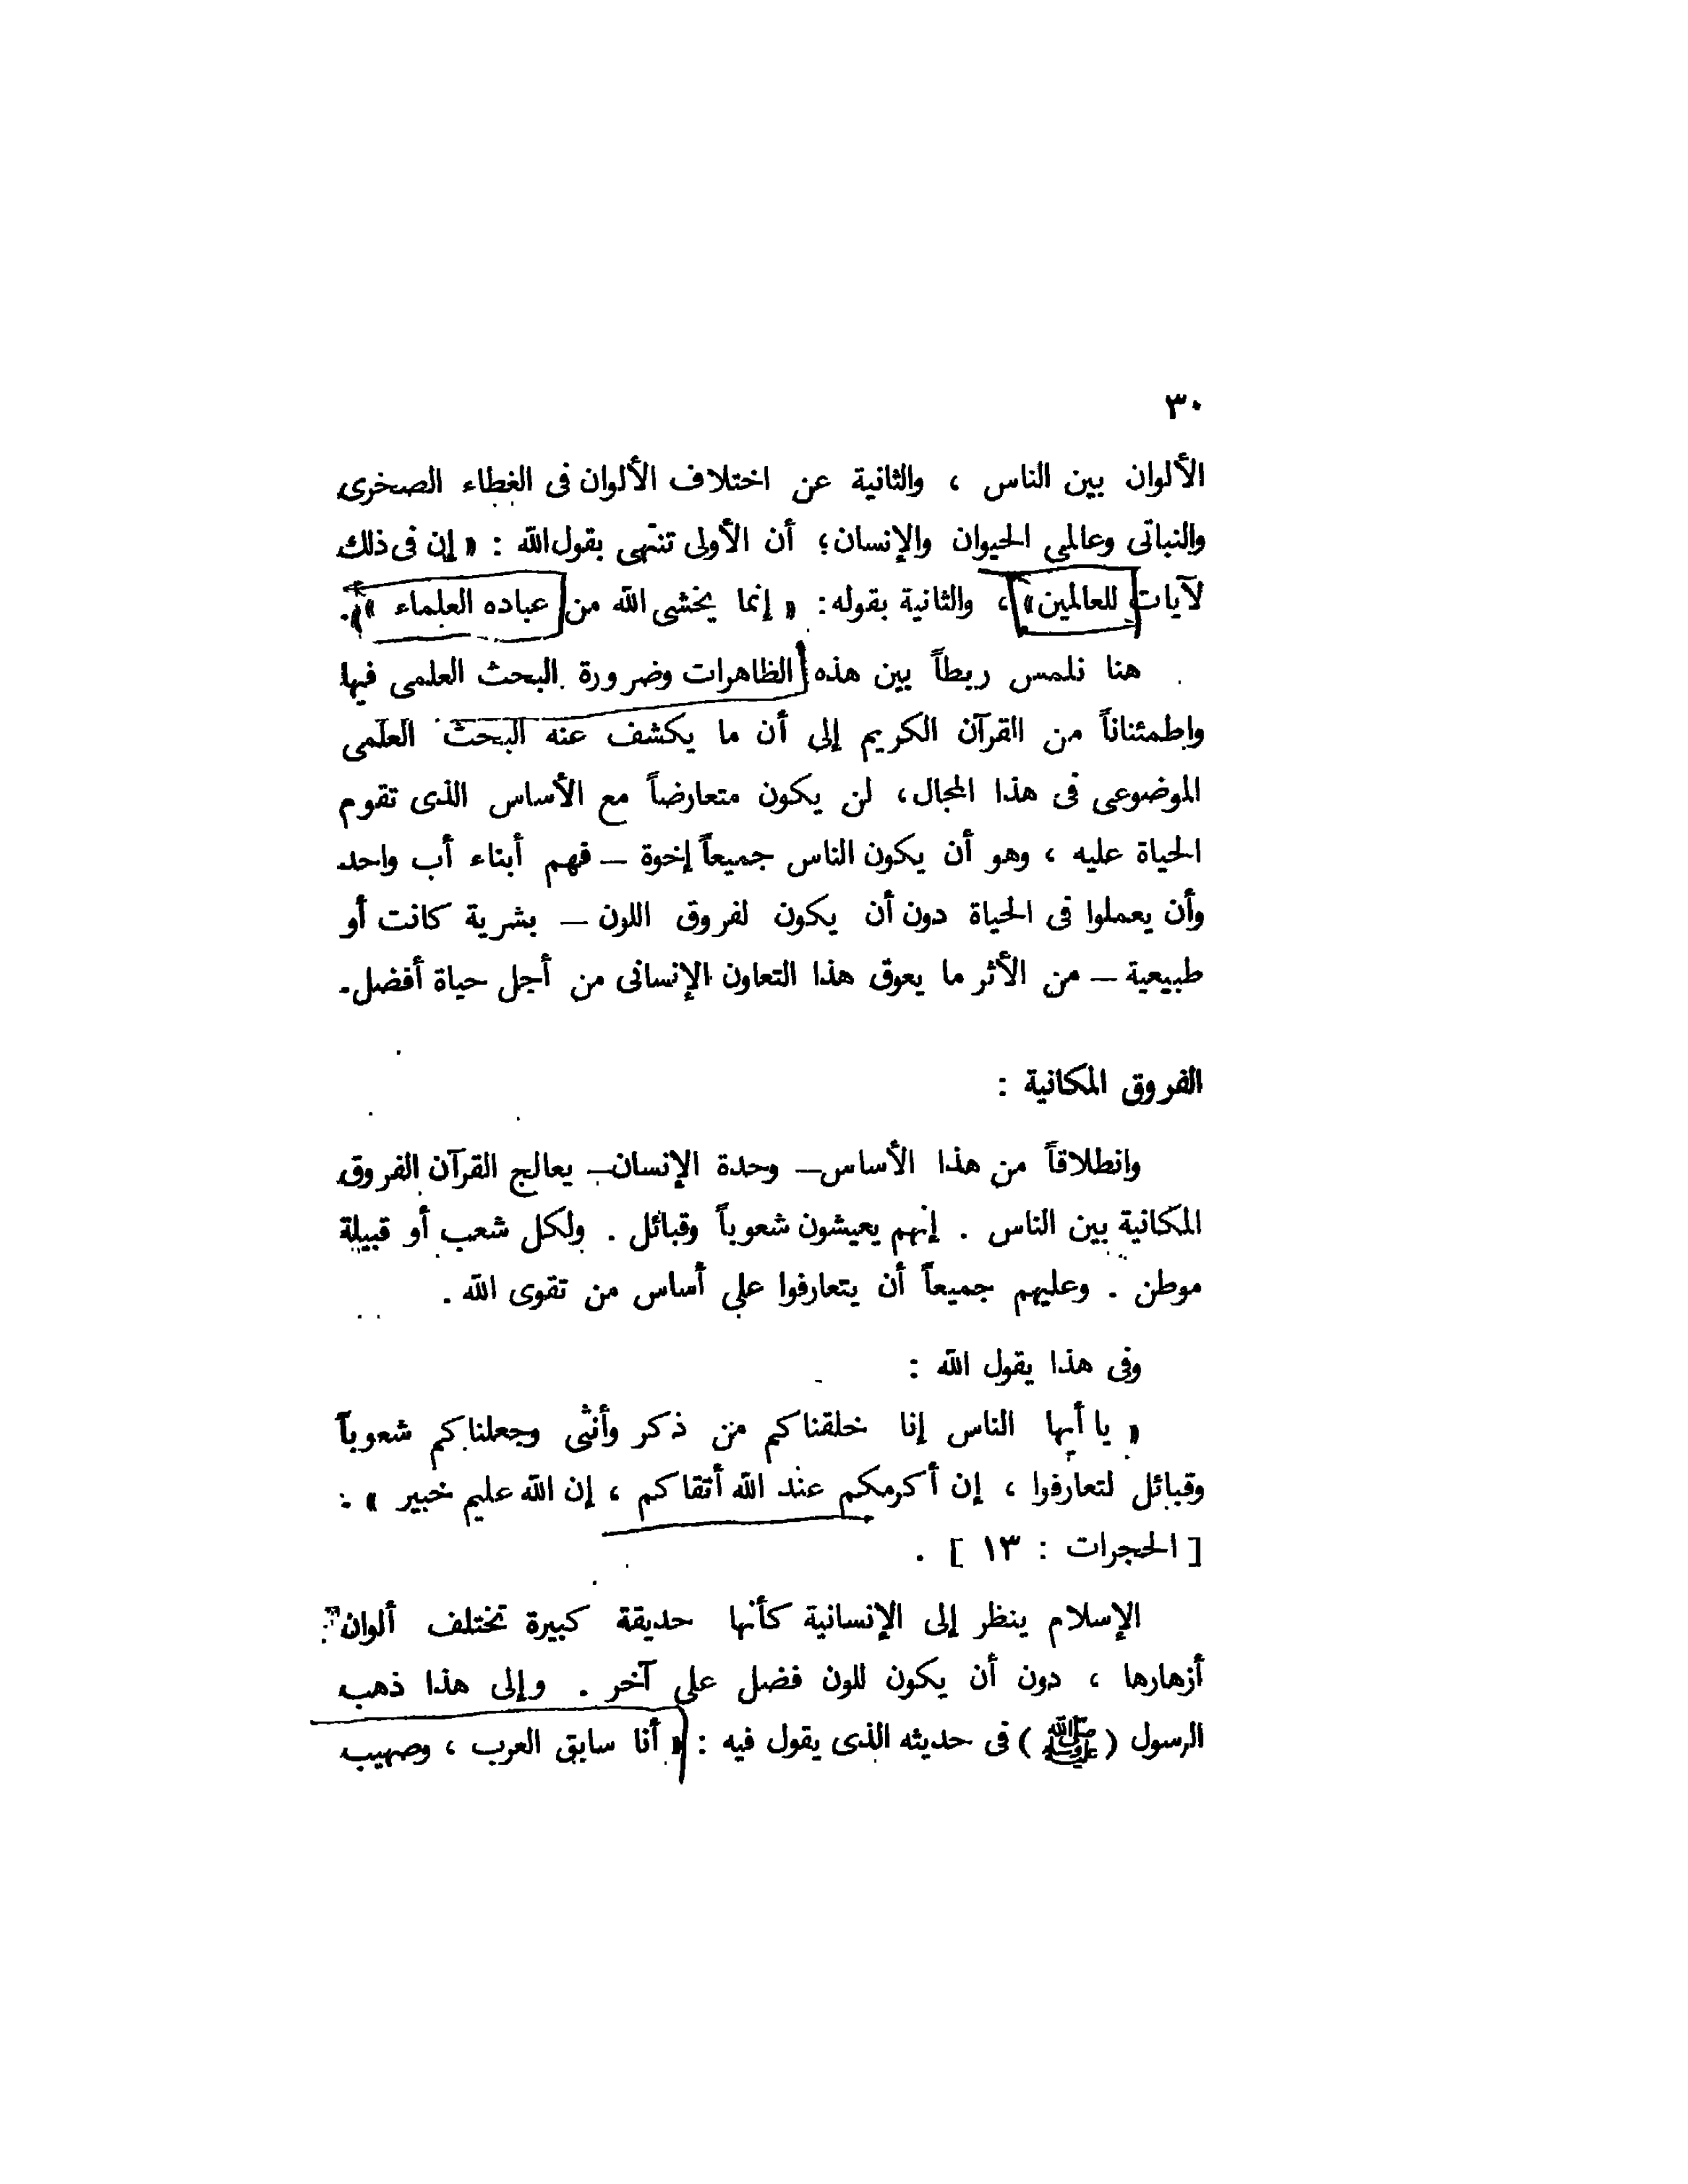 ٣٠
الألوان بين الناس ، والثانية عن اختلاف الألوان فى الغطاء الصخرى
والنباتى وعالمى الحيوان والإنسان؛ أن الأولى تنتهى بقول الله : « إن فى ذلك
لآيات للعالمين» ، والثانية بقوله: « إنما يخشى الله من عباده العلماء ».
هنا نلمس ربطاً بين هذه الظاهرات وضرورة البحث العلمى فيها
واطمئناناً من القرآن الكريم إلى أن ما يكشف عنه البحث العلمى
الموضوعى فى هذا المجال، لن يكون متعارضاً مع الأساس الذى تقوم
الحياة عليه ، وهو أن يكون الناس جميعاً إخوة – فهم أبناء أب واحد
وأن يعملوا فى الحياة دون أن يكون لفروق اللون – بشرية كانت أو
طبيعية – من الأثر ما يعوق هذا التعاون الإنسانى من أجل حياة أفضل.
الفروق المكانية :
وانطلاقاً من هذا الأساس– وحدة الإنسان– يعالج القرآن الفروق
المكانية بين الناس . إنهم يعيشون شعوباً وقبائل . ولكل شعب أو قبيلة
موطن . وعليهم جميعاً أن يتعارفوا على أساس من تقوى الله .
وفى هذا يقول الله :
« يا أيها الناس إنا خلقناكم من ذكر وأنثى وجعلناكم شعوباً
وقبائل لتعارفوا ، إن أكرمكم عند الله أتقاكم ، إن الله عليم خبير » :
[ الحجرات : ١٣ ] .
الإسلام ينظر إلى الإنسانية كأنها حديقة كبيرة تختلف ألوان
أزهارها ، دون أن يكون للون فضل على آخر . وإلى هذا ذهب
الرسول (ﷺ) فى حديثه الذى يقول فيه : « أنا سابق العرب ، وصهيب